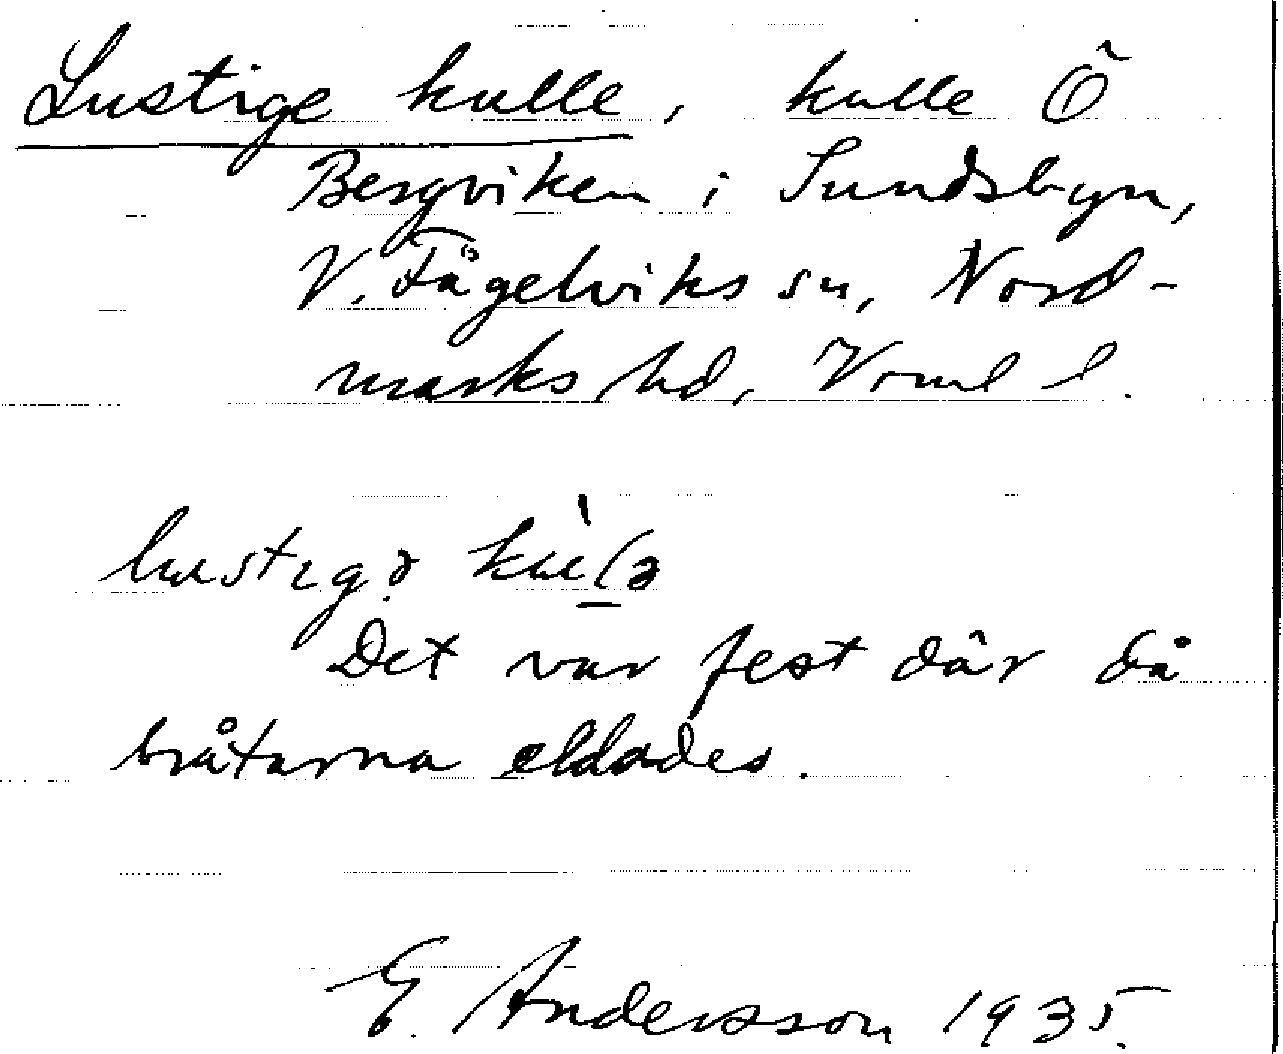 Lustige kulle, kulle Ö
Bergviken i Sundsbyn,
V. Fågelviks sn, Nord-
marks hd, Vrml l.
lustıgə kùlə
Det var fest där då
bråtarna eldades.
E. Andersson 1935.